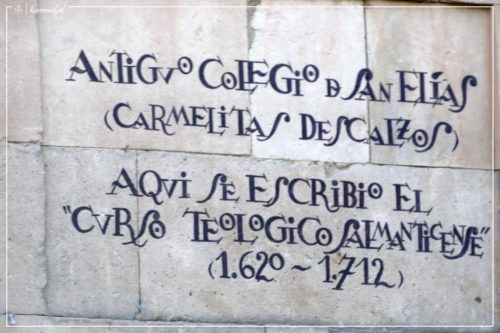 karmel.pl
ANTIGVO COLEGIO DE SAN ELÍAS
(CARMELITAS DESCALZOS)
AQVI SE ESCRIBIO EL
"CVRSO TEOLOGICO SALMANTICENSE"
(1.620 ~ 1.712)